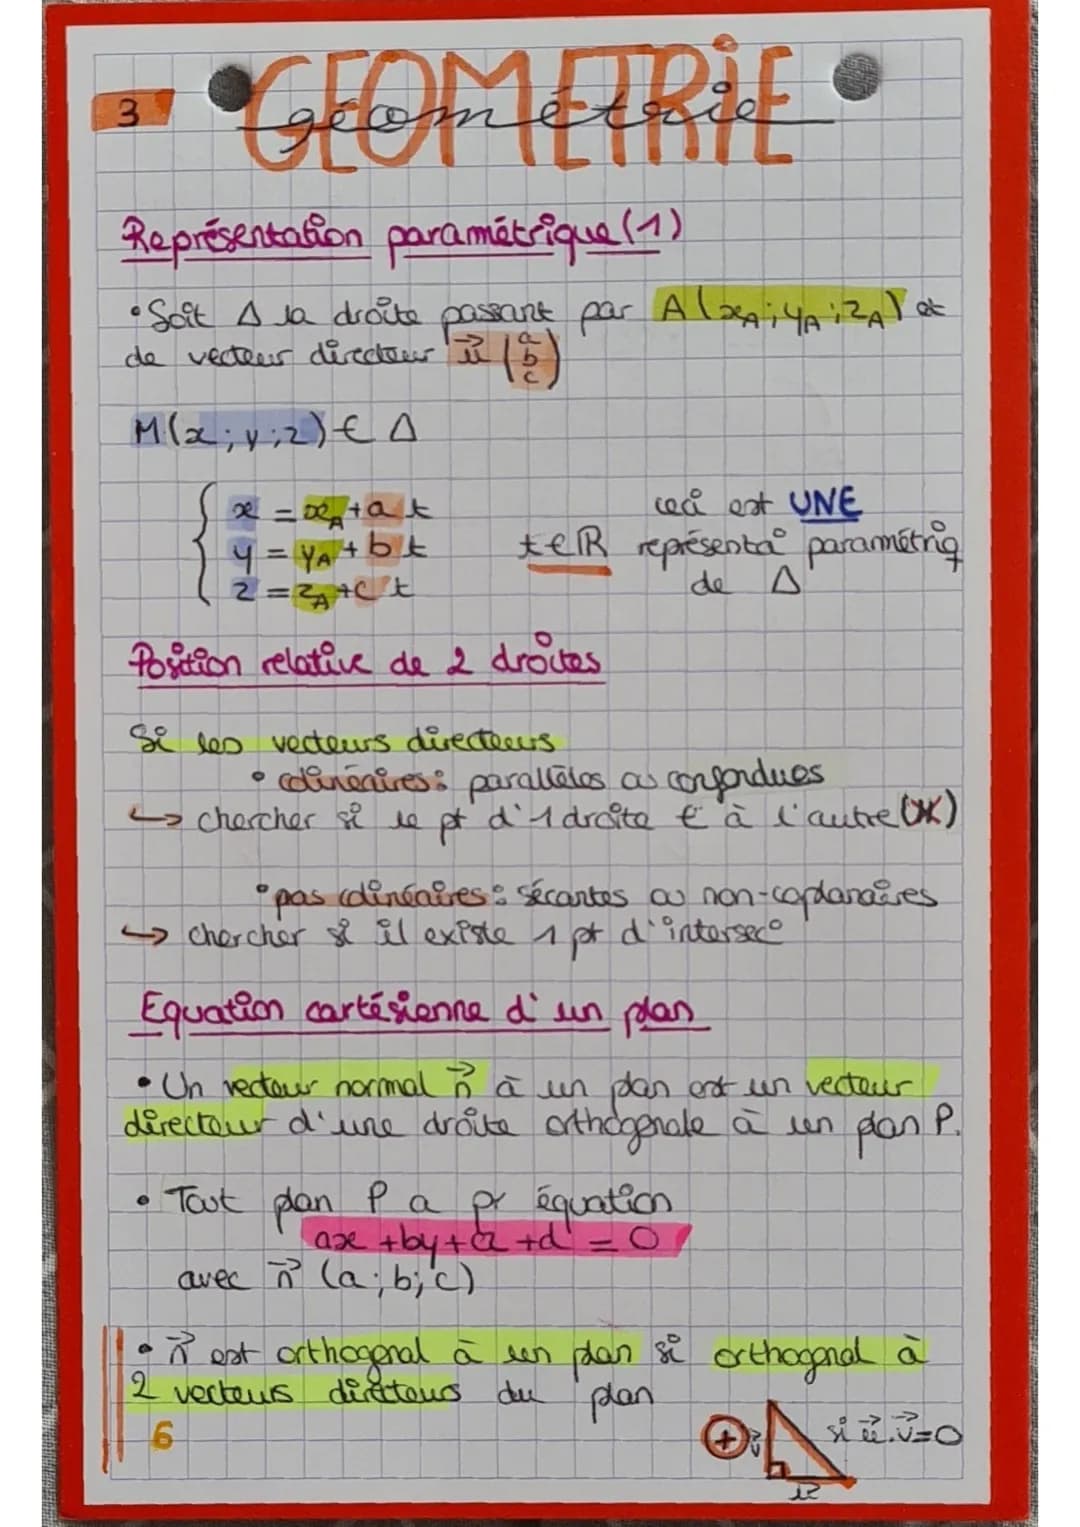 3
GEOMETRIE
géométrie
Représentation paramétrique (1)
• Soit Δ la droite passant par A(xA; yA; zA) et
de vecteur directeur u⃗ (a b c)
M(x; y; z) ∈ Δ
{ x = xA + a t
y = yA + b t
z = zA + c t
t ∈ ℝ
ceci est UNE
représentaº paramétriq
de Δ
Position relative de 2 droites
Si les vecteurs directeurs
• colinéaires : parallèles ou confondues
↪ chercher si le pt d'1 droite ∈ à l'autre (Ж)
• pas colinéaires : sécantes ou non-coplanaires
↪ chercher si il existe 1 pt d'intersecº
Equation cartésienne d'un plan
• Un vecteur normal n⃗ à un plan est un vecteur
directeur d'une droite orthogonale à un plan P.
• Tout plan P a pr équation
ax + by + cz + d = 0
avec n⃗ (a; b; c)
• n⃗ est orthogonal à un plan si orthogonal à
2 vecteurs directeurs du plan
6
+ v⃗ si u⃗.v⃗=0
u⃗